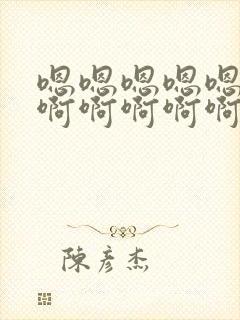 嗯嗯嗯嗯嗯
啊啊啊啊啊
陳彥杰